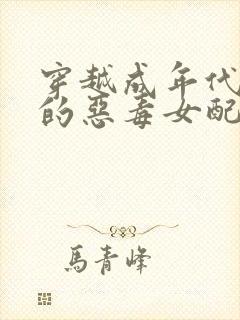 穿越成年代
的惡毒女配
馬青峰